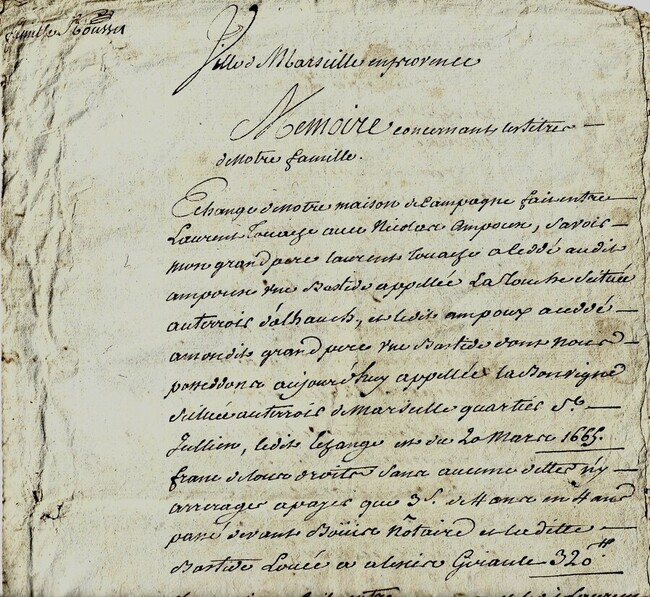 famille Rousset
Ville de Marseille en provence
Memoire concernant les titres
de notre famille.
Echange de notre maison de campagne fait entre
Laurent Touaze avec Nicolas Ampoux, savoir
mon grand pere laurent Touaze a ceddé audit
ampoux une Bastide appellée La Touche situeé
au terroir d'alhauch, et ledit ampoux a ceddé
a mondit grand pere une Bastide dont nous
possedons aujourd'huy appellée la Bonvigne
située au terroir de Marseille quartier St.
Jullien, ledit Echange est du 20 Mars 1665.
franc de tous droits sans aucune dettes n'y
arrerages a payer que 3 s. de 4 ans en 4 ans
passé devant Notaire et ladite
Bastide Louée a 320 ₶